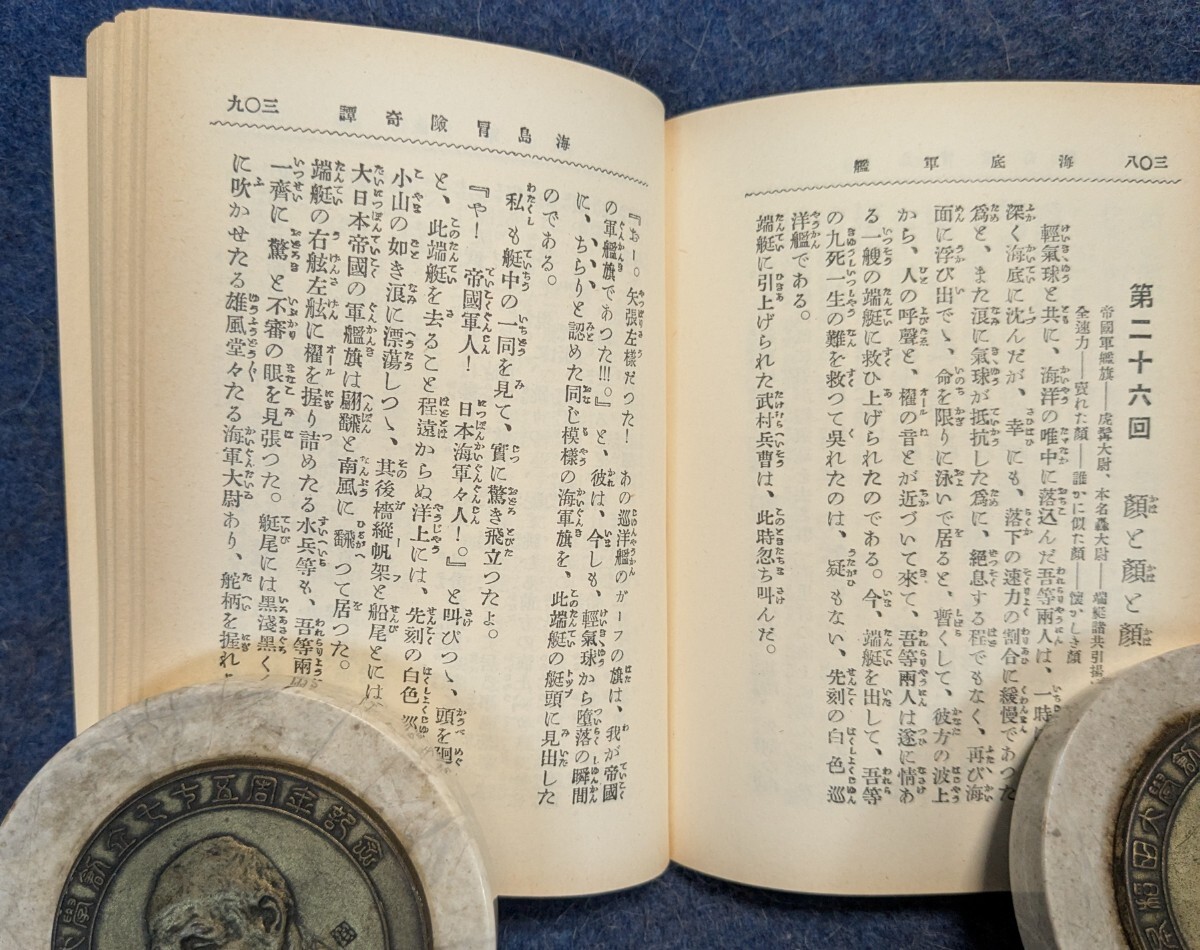 海底軍艦
三〇八
第二十六回　顏と顏と顏
帝國軍艦旗――虎髯大尉、本名轟大尉――端艇諸共引揚
全速力――賣れた顏――誰かに似た顏――懷かしき顏
輕氣球と共に、海洋の唯中に落込んだ吾等兩人は、一時
深く海底に沈んだが、幸にも、落下の速力の割合に緩慢であつた
爲と、また浪に氣球が抵抗した爲に、絕息する程でもなく、再び海
面に浮び出でゝ、命を限りに泳いで居ると、暫くして、彼方の波上
から、人の呼聲と、櫂の音とが近づいて來て、吾等兩人は遂に情あ
る一艘の端艇に救ひ上げられたのである。今、端艇を出して、吾等
の九死一生の難を救つて吳れたのは、疑もない、先刻の白色巡
洋艦である。
端艇に引上げられた武村兵曹は、此時忽ち叫んだ。
海島冐險奇譚
三〇九
『おー。矢張左樣だつた！　あの巡洋艦のガーフの旗は、我が帝國
の軍艦旗であつた!!!。』と、彼は、今しも、輕氣球から墮落の瞬間
に、ちらりと認めた同じ模樣の海軍旗を、此端艇の艇頭に見出した
のである。
私も艇中の一同を見て、實に驚き飛立つたよ。
『や！　帝國軍人！　日本海軍々人！。』と叫びつゝ、頭を廻
と、此端艇を去ること程遠からぬ洋上には、先刻の白色巡
小山の如き浪に漂蕩しつゝ、其後檣縱帆架と船尾とには
大日本帝國の軍艦旗は翩飜と南風に飜つて居つた。
端艇の右舷左舷に櫂を握り詰めたる水兵等も、吾等兩
一齊に驚と不審の眼を見張つた。艇尾には黑淺黑く
に吹かせたる雄風堂々たる海軍大尉あり、舵柄を握れ
學創立七十五周年記念
稻田大學創